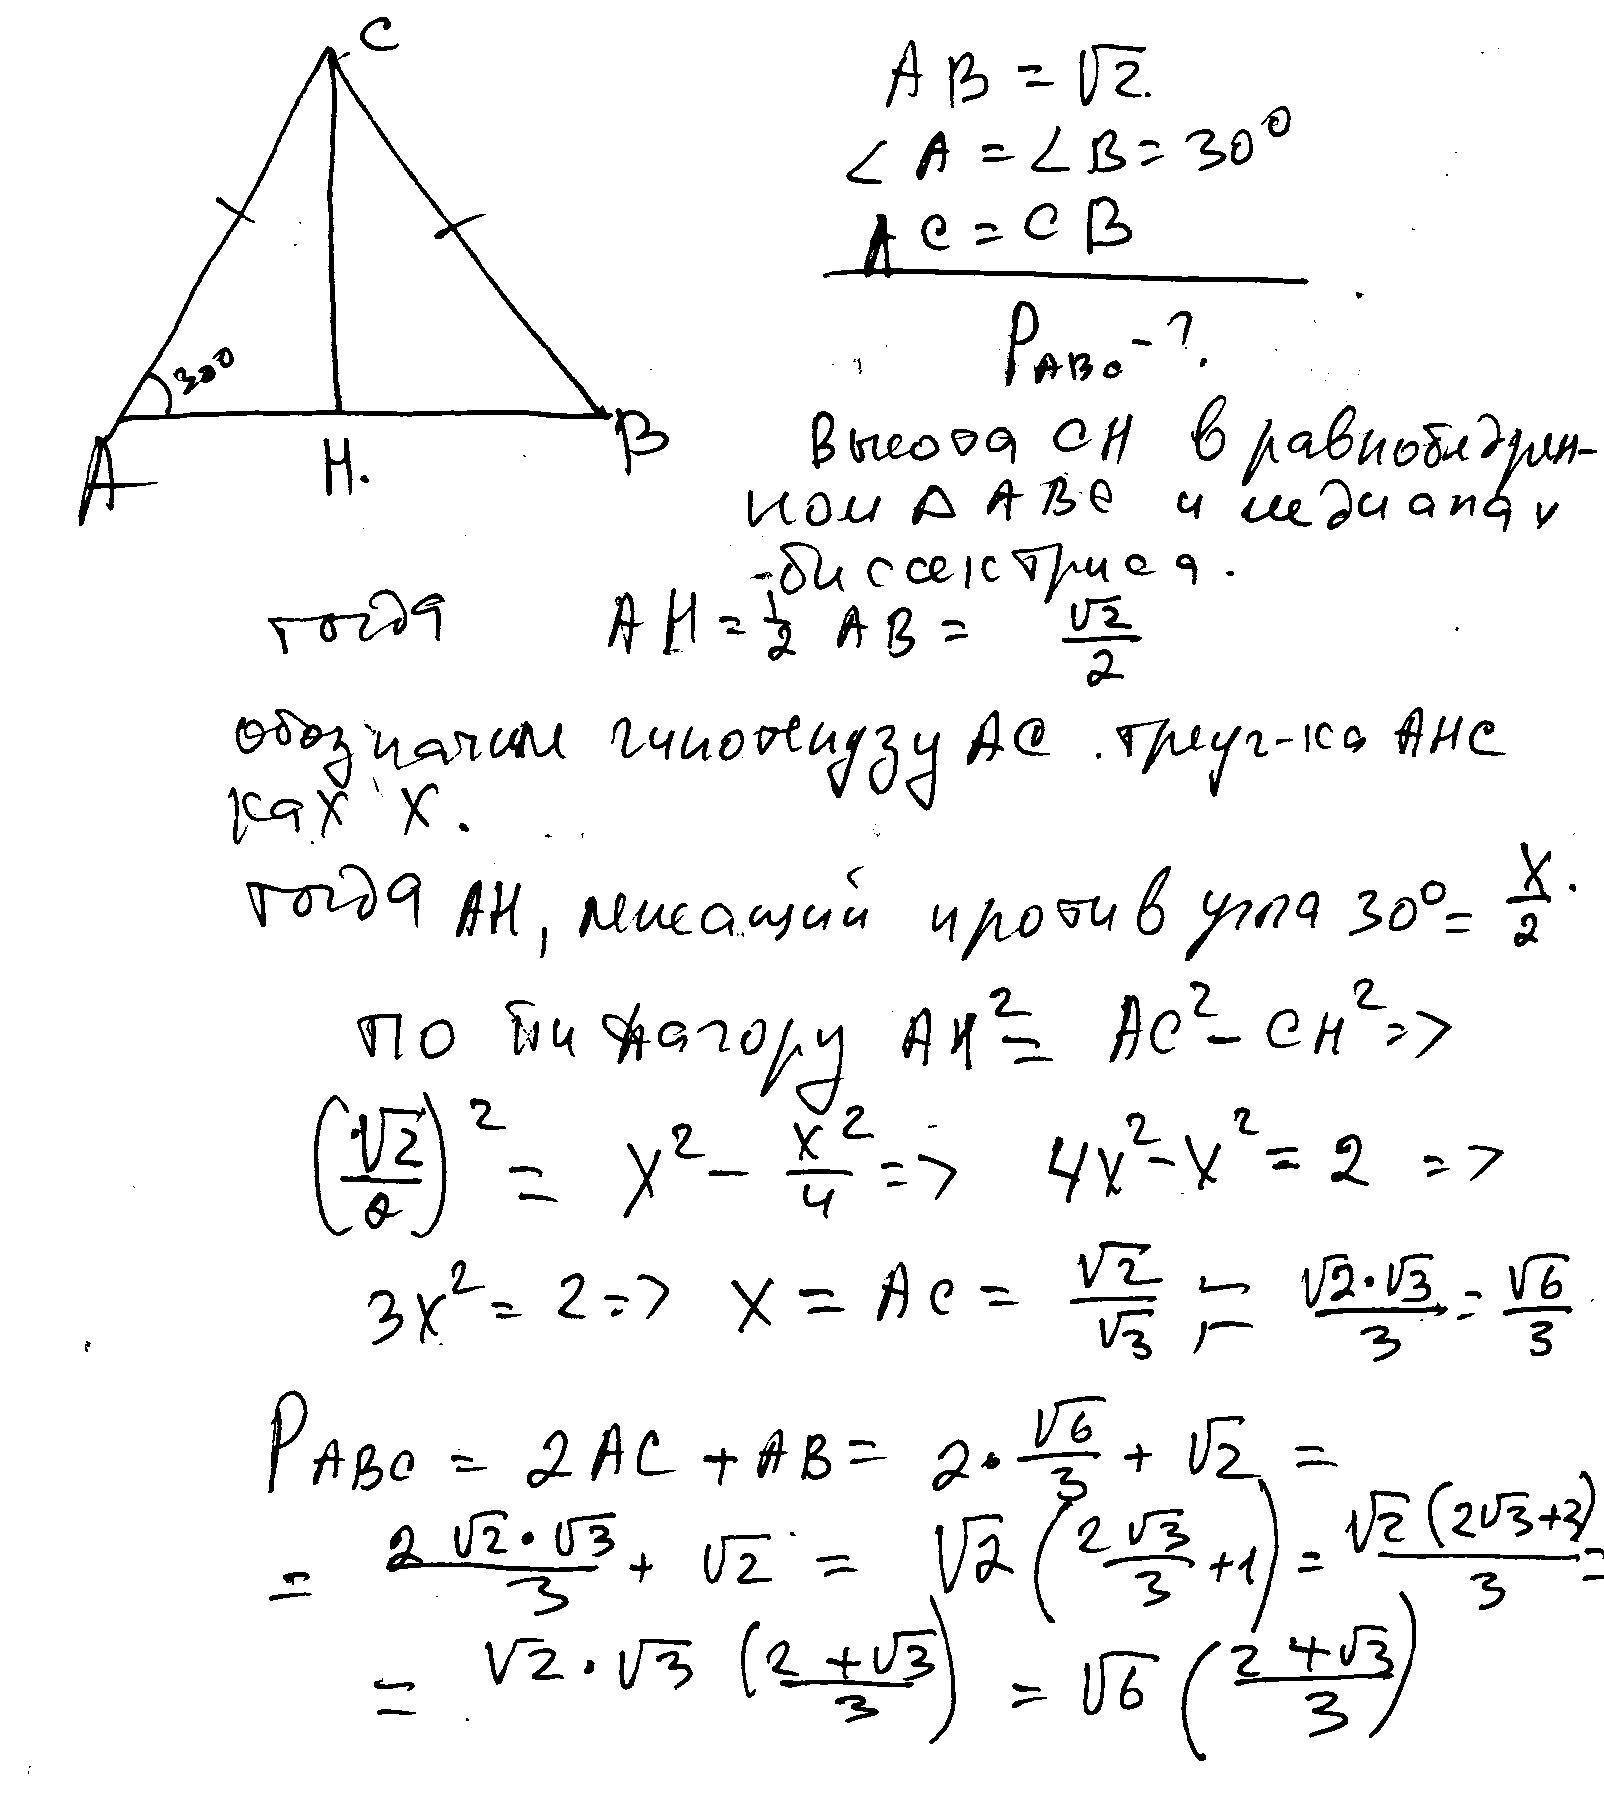 C
AB = √2
∠A = ∠B = 30°
AC = CB
P ABC - ?
30°
A
H.
B
Высота CH в равнобедрен-
ном Δ ABC и медиана и
-биссектриса.
тогда AH = 1/2 AB = √2/2
обозначим гипотенузу AC треуг-ка AHC
как X.
тогда AH, лежащий против угла 30° = X/2.
по пифагору AH² = AC² - CH² =>
(√2/2)² = X² - X²/4 => 4X² - X² = 2 =>
3X² = 2 => X = AC = √2/√3 = √2·√3/3 = √6/3
P ABC = 2AC + AB = 2·√6/3 + √2 =
= 2√2·√3/3 + √2 = √2(2√3/3 + 1) = √2(2√3+3)/3 =
= √2·√3 (2+√3/3) = √6 (2+√3/3)